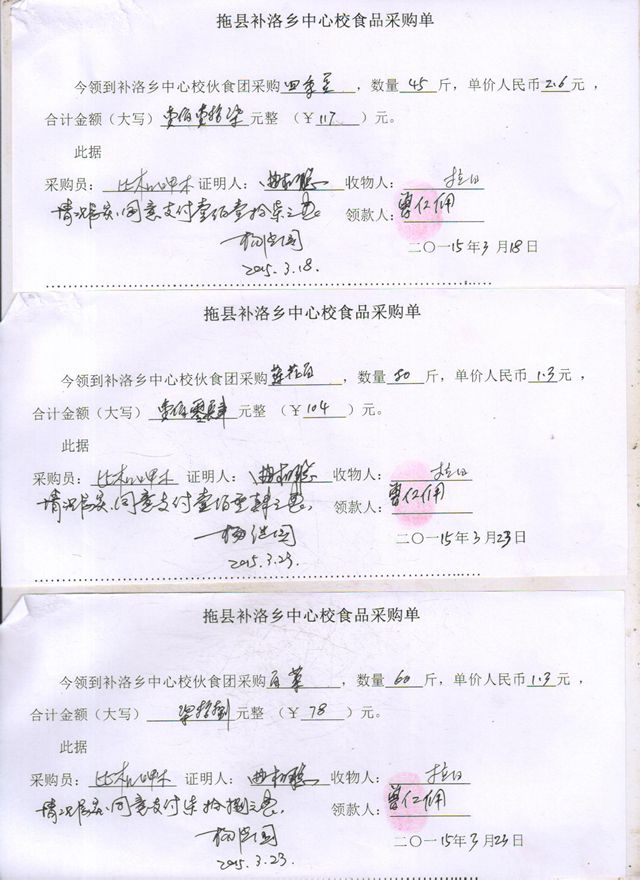 拖县补洛乡中心校食品采购单
今领到补洛乡中心校伙食团采购四季豆，数量45斤，单价人民币2.6元，
合计金额（大写）壹佰壹拾柒元整（￥117）元。
此据
采购员：比机呷木 证明人： 收物人：拉日
情况属实，同意支付壹佰壹拾柒元整。 领款人：曾仁佣
二〇一15年3月18日
2015.3.18.
拖县补洛乡中心校食品采购单
今领到补洛乡中心校伙食团采购莲花白，数量80斤，单价人民币1.3元，
合计金额（大写）壹佰零肆元整（￥104）元。
此据
采购员：比机呷木 证明人： 收物人：拉日
情况属实，同意支付壹佰零肆元整。 领款人：曾仁佣
二〇一15年3月23日
2015.3.23.
拖县补洛乡中心校食品采购单
今领到补洛乡中心校伙食团采购白菜，数量60斤，单价人民币1.3元，
合计金额（大写）柒拾捌元整（￥78）元。
此据
采购员：比机呷木 证明人： 收物人：拉日
情况属实，同意支付柒拾捌元整。 领款人：曾仁佣
二〇一15年3月23日
2015.3.23.